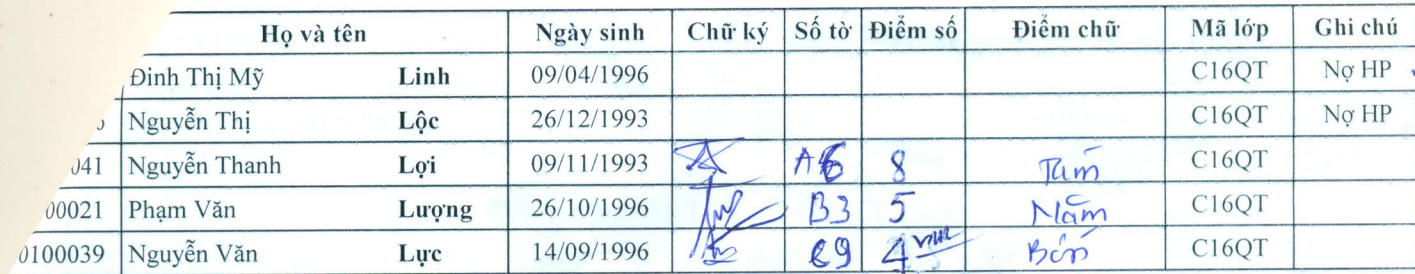 Họ và tên Ngày sinh Chữ ký Số tờ Điểm số Điểm chữ Mã lớp Ghi chú
Đinh Thị Mỹ Linh 09/04/1996 C16QT Nợ HP
Nguyễn Thị Lộc 26/12/1993 C16QT Nợ HP
041 Nguyễn Thanh Lợi 09/11/1993 8 Tám C16QT
00021 Phạm Văn Lượng 26/10/1996 B3 5 Năm C16QT
0100039 Nguyễn Văn Lực 14/09/1996 C9 4 Bốn C16QT